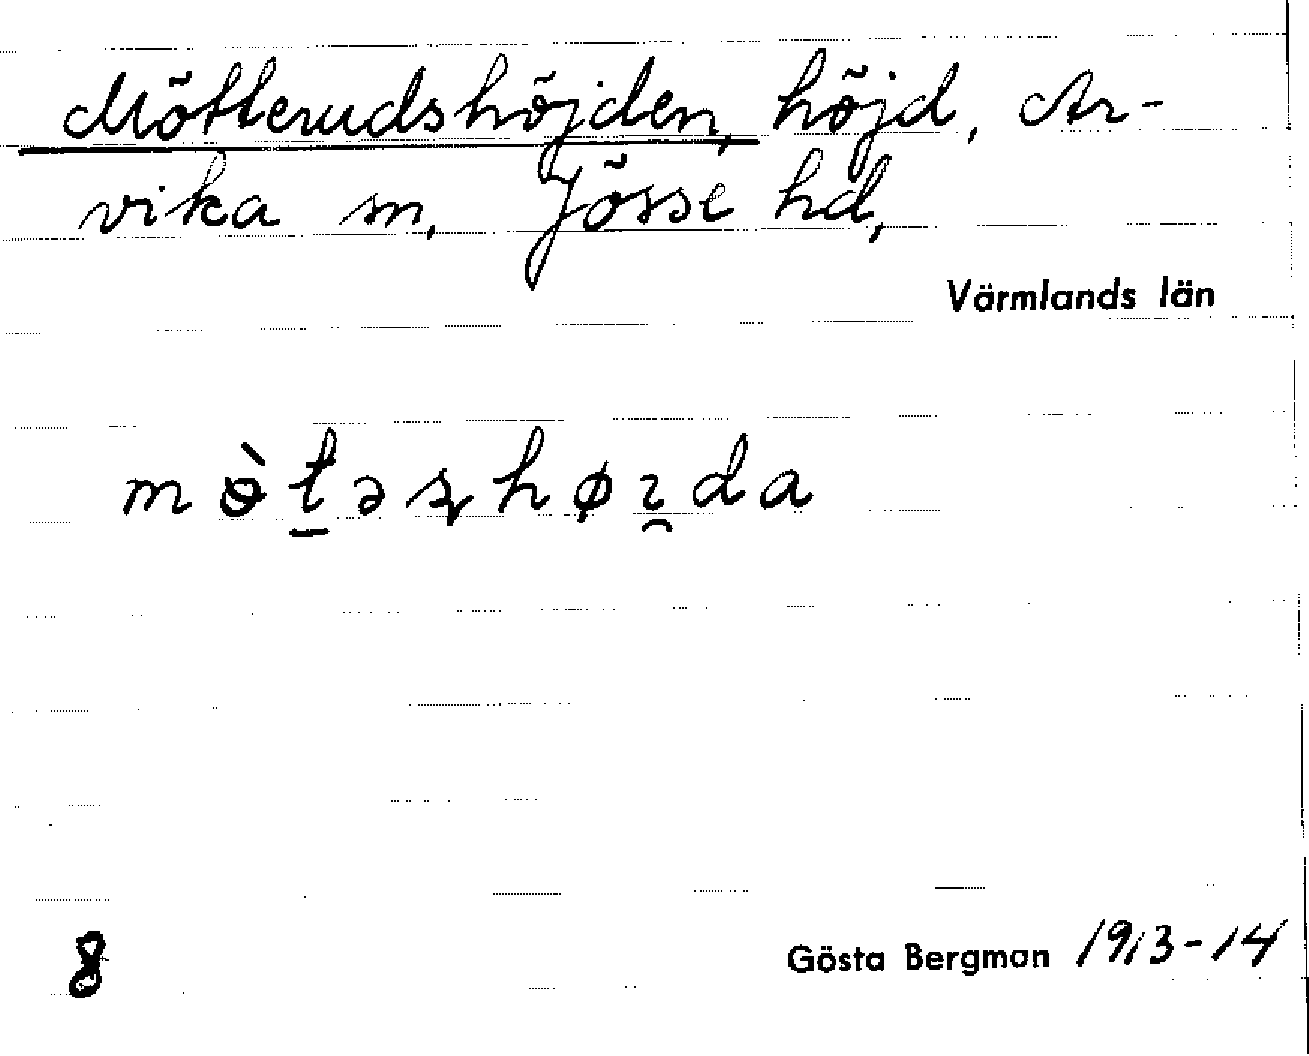 Mötterudshöjden, höjd, Ar-
vika sn, Jösse hd,
Värmlands län
mɵ̀t̠əʂhøɪ̯da
8
Gösta Bergman 1913-14